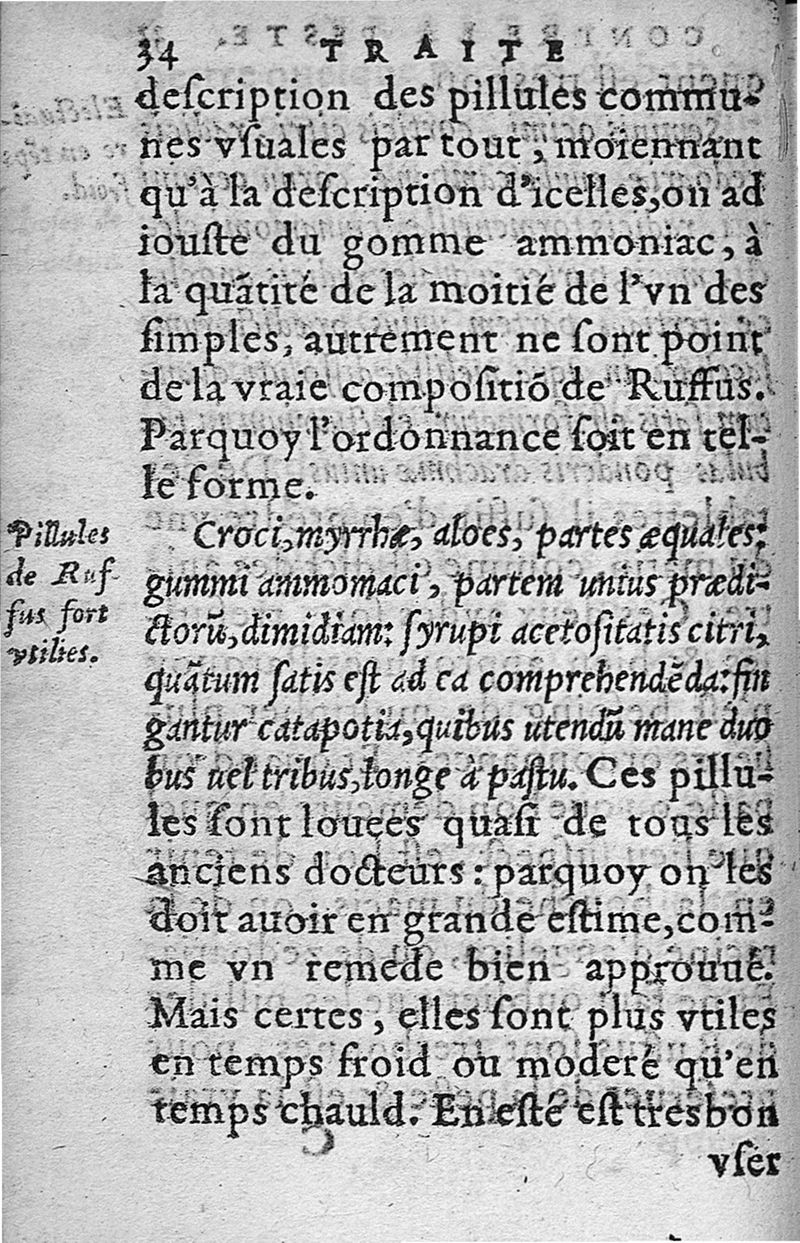 34 TRAITE
deſcription des pillules commu-
nes vſuales par tout, moiennant
qu'à la deſcription d'icelles, on ad
iouſte du gomme ammoniac, à
la quãtité de la moitié de l'vn des
ſimples, autrement ne ſont point
de la vraie compoſitiõ de Ruffus.
Parquoy l'ordonnance ſoit en tel-
le forme.
Pillules
de Ruf-
fus fort
vtilles.
Croci, myrrhæ, aloes, partes æquales:
gummi ammomaci, partem unius prædi-
ctorũ, dimidiam: ſyrupi acetoſitatis citri,
quãtum ſatis eſt ad ea comprehendẽda: fin
gantur catapotia, quibus utendũ mane duo
bus uel tribus, longe à paſtu. Ces pillu-
les ſont louées quaſi de tous les
anciens docteurs : parquoy on les
doit auoir en grande eſtime, com-
me vn remede bien approuué.
Mais certes, elles ſont plus vtiles
en temps froid ou moderé qu'en
temps chauld. En eſté eſt tresbon
vſer